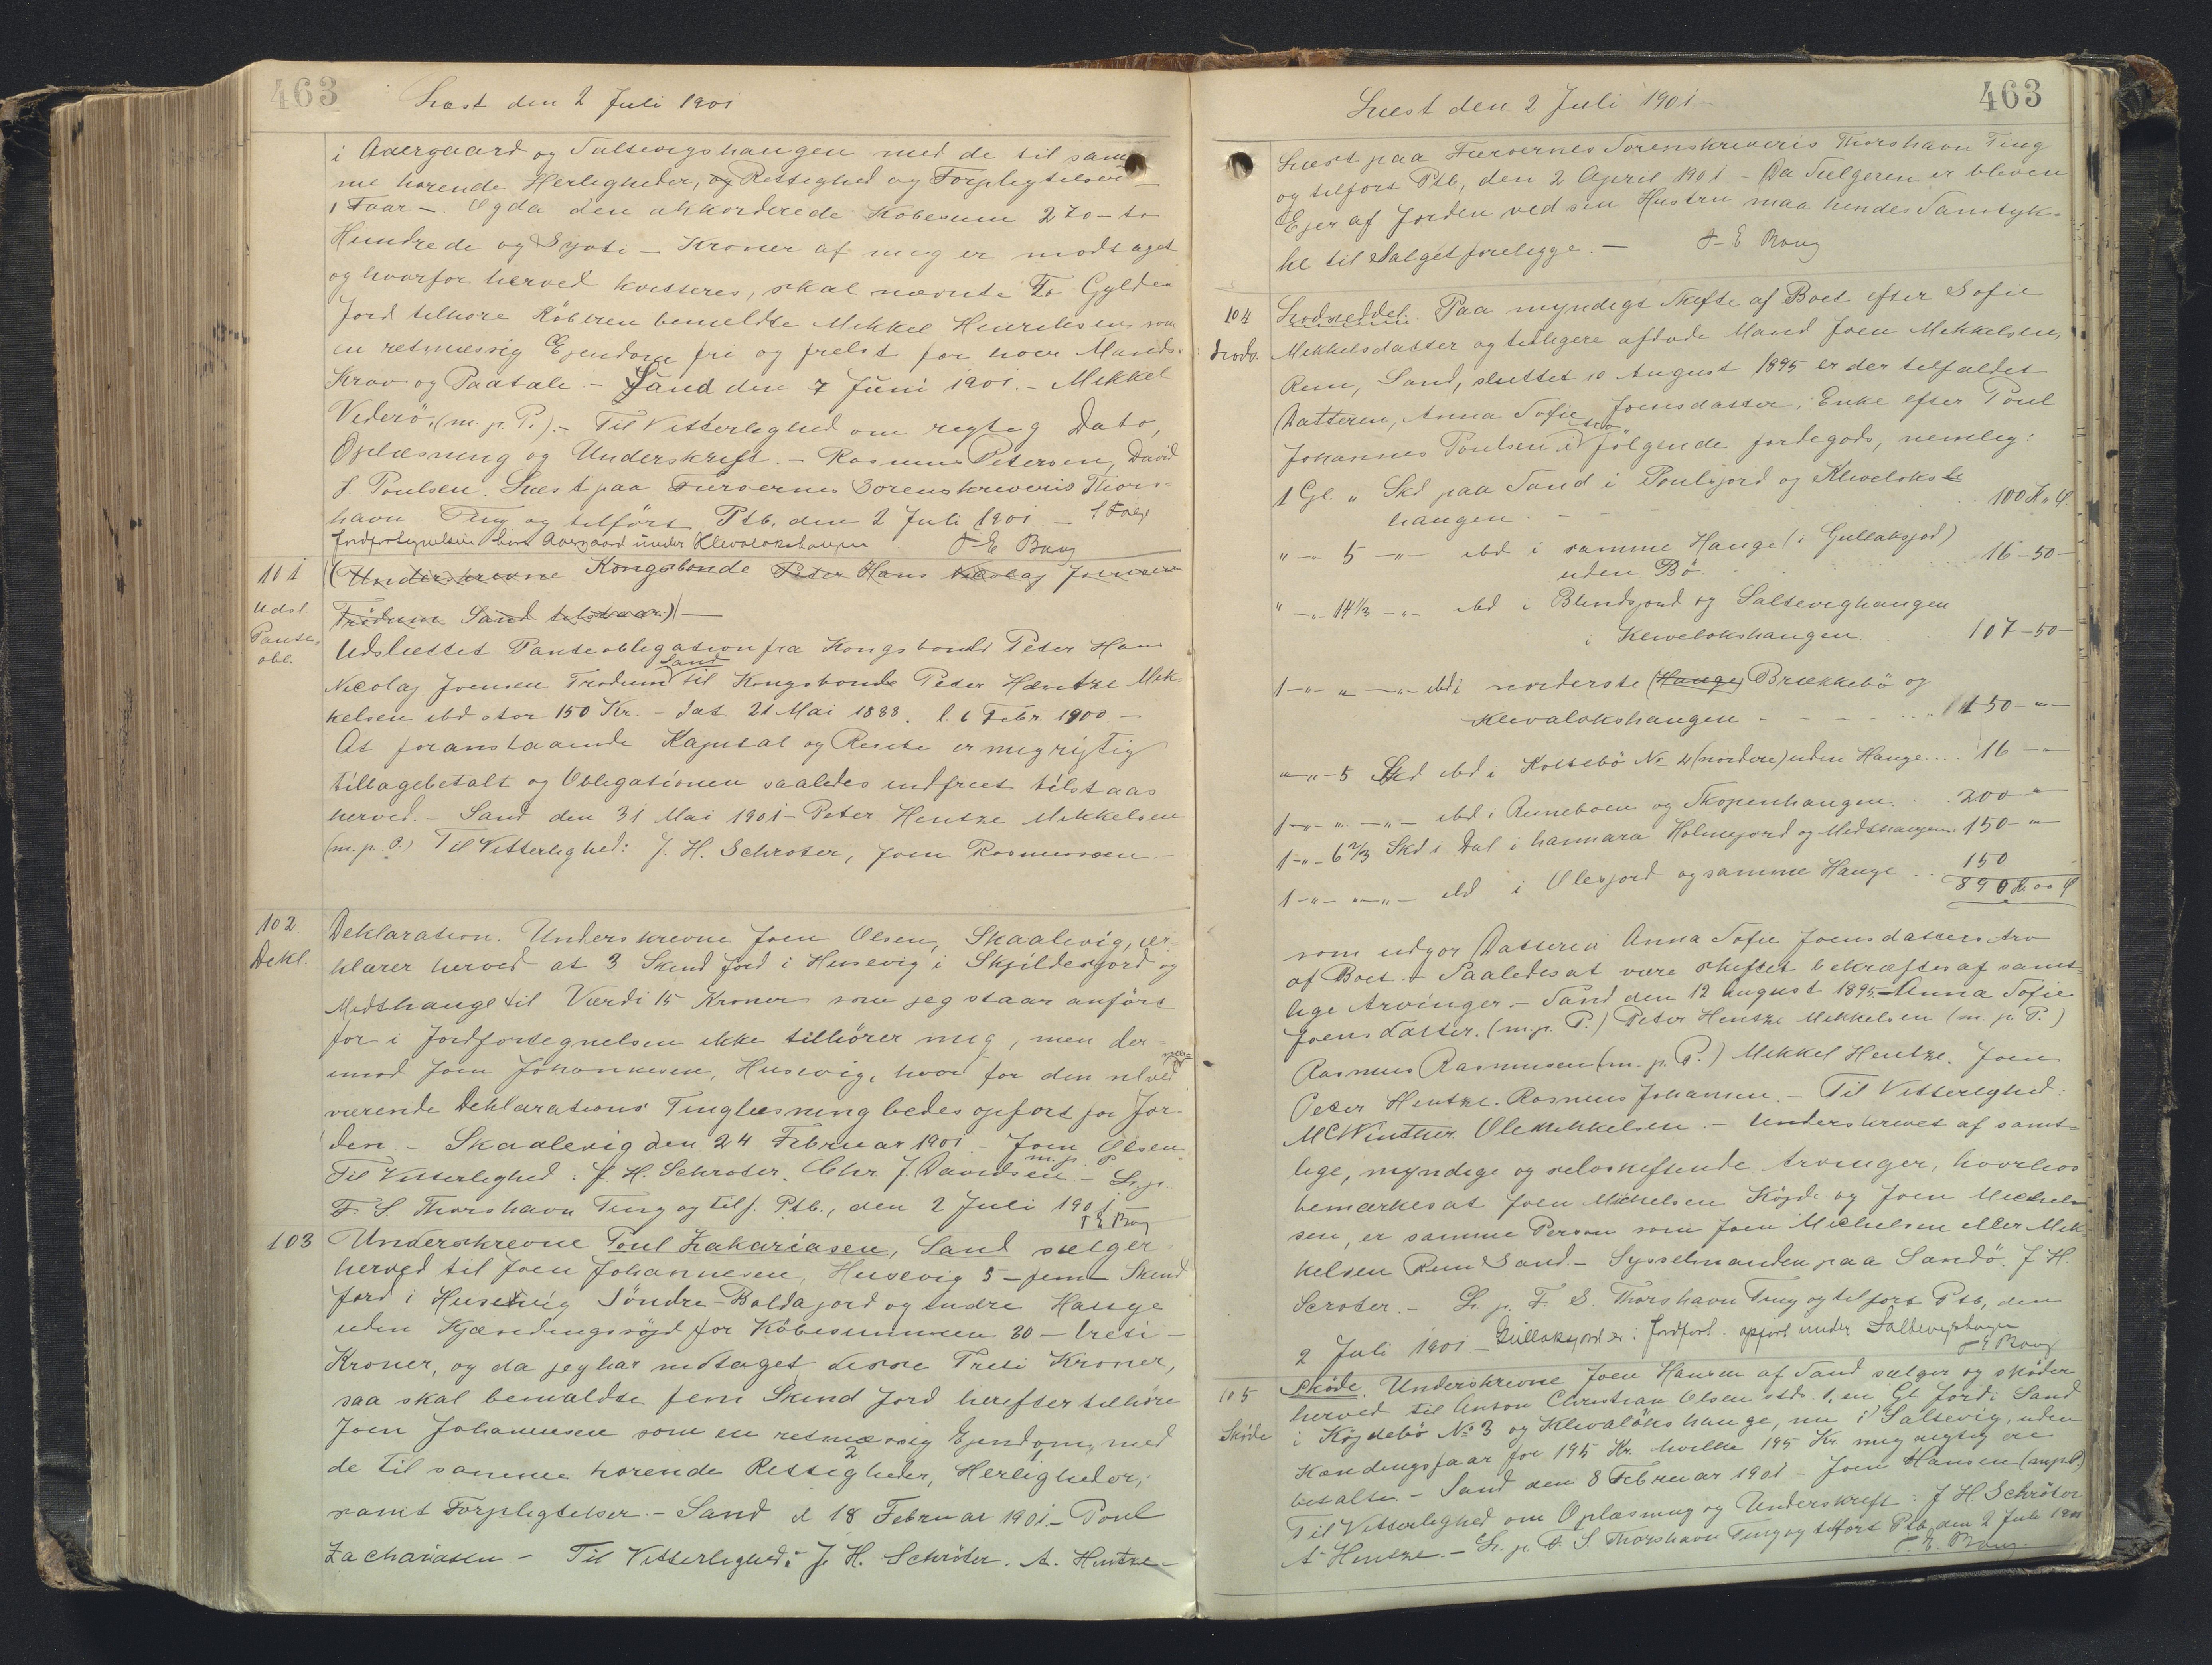 463
Læst den 2 Juli 1901
i Aaergaard og Saltevigshaugen med de til sam-
me hørende Herligheder, og Rettighed og Forpligtelser
1 Faar –. Og da den akkorderede Købesum 270 – to
Hundrede og Syvti – Kroner af mig er modtaget
og hvorfor herved kvitteres, skal nævnte To Gylden
Jord tilhøre Köberen bemeldte Mikkel Henriksen som
en retmæssig Ejendom fri og frelst for hver Mands
Krav og Paatale. – Sand den 7 Juni 1901. – Mikkel
Viderö. (m. p. P.). – Til Vitterlighed om rigtig Dato,
Oplæsning og Underskrift. – Rasmus Petersen, David
J. Poulsen. Læst paa Færøernes Sorenskriveris Thors-
havn Ting og tilført Ptb. den 2 Juli 1901. –
Jordfortegnelsen har Aaergaard under Klevalokshaugen
J E Bang
101 (Underskrevne Kongsbonde Peter Hans Nicolaj Joensen
Udsl. Trödum Sand tilstaar) –
Pante Udslettet Panteobligation fra Kongsbonde Peter Hans
obl.
Nicolaj Joensen Trödum Sand til Kongsbonde Peter Hentze Mik-
kelsen ibd stor 150 Kr. – dat. 21 Mai 1888. l. 6 Febr. 1900. –
At foranstaaende Kapital og Rente er mig rigtig
tilbagebetalt og Obligationen saaledes indfriet tilstaas
herved. – Sand den 31 Mai 1901 – Peter Hentze Mikkelsen
(m. p. P.) Til Vitterlighed: J. H. Schrøter, Joen Rasmussen –
102. Deklaration. Underskrevne Joen Olsen, Skaalevig, er-
Dekl. klærer herved at 3 Skind Jord i Husevig i Skjildesgjord og
Midthauge til Værdi 15 Kroner som jeg staar anført
for i Jordfortegnelsen ikke tilhører mig, men der-
imod Joen Johannesen, Husevig, hvor for den ved nær-
værende Deklarations Tinglæsning bedes opført for Jor-
den – Skaalevig den 24 Februar 1901 – Joen Olsen
m. p. P
Til Vitterlighed: J. H. Schrøter. Chr. J. Davidsen – L. p.
F. S. Thorshavn Ting og tilf. Ptb., den 2 Juli 1901
J E Bang
103 Underskrevne Poul Zakariasen, Sand sælger
herved til Joen Johannesen, Husevig 5 – fem – Skind
Jord i Husevig Söndre-Baldajord og Indre Hauge
uden Kjændingsröjd for Köbesummen 30 – treti –
Kroner, og da jeg har modtaget disse Treti Kroner,
saa skal bemældte fem Skind Jord herefter tilhöre
Joen Johannesen som en retmæssig Ejendom, med
de til samme hørende Rettigheder, 2 Herligheder, 1
samt Forpligtelser. – Sand d 18 Februar 1901 – Poul
Zachariasen – Til Vitterlighed: J. H. Schröter. A. Hentze –
463
Læst den 2 Juli 1901 –
Læst paa Færøernes Sorenskriveris Thorshavn Ting
og tilført Ptb, den 2 April 1901 – Da Sælgeren er bleven
Ejer af Jorden ved sin Hustru maa hendes Samtyk-
ke til Salget foreligge. – J E Bang
104 Lodseddel. Paa myndigt Skifte af Boet efter Sofie
Lods. Mikkelsdatter og tidligere afdøde Mand Joen Mikkelsen,
Reni, Sand, sluttet 10 August 1895 er der tilfaldet
Datteren, Anna Sofie Joensdatter, Enke efter Poul
Johannes Poulsen følgende Jordegods, nemlig:
1 Gl. " Skd paa Sand i Poulsjord og Klivaloks-
haugen . – – . . 100 K. " Ø.
" – 5 – " – ibd i samme Hauge (i Gullaksjord)
uden Bö . . . 16 – 50 –
" – " 14 1/3 – " – ibd i Blindsjord og Saltevighaugen
i Klivelokshaugen . . 107 – 50 –
1 – " – " – " – ibd i norderste (Hauge) Brekkebö og
Klevalokshaugen – – – . . 150 – " –
" – " – 5 Skd ibd i Koltebö No 4 (nordere) uden Hauge . . . 16 – "
1 – " – " – " – ibd i Runeboen og Skopenhaugen . . 200 – "
1 – " – 6 2/3 Skd i Dal i hannara Holmejord og Midthaugen 150 – "
1 – " – " – " – ibd i Olesjord og samme Hauge . . 150
890 Kr 00 Ø
som udgør Datteren Anna Sofie Joensdatters Arv
af Boet. – Saaledes at være skiftet bekræftes af samt-
lige Arvinger. – Sand den 12 August 1895 – Anna Sofie
Joensdatter. (m. p. P.) Peter Hentze Mikkelsen (m. p. P.)
Rasmus Rasmussen (m. p. P.) Mikkel Hentze. Joen
Peter Hentze. Rasmus Johansen. – Til Vitterlighed:
M C Winther. Ole Mikkelsen. – Underskrevet af samt-
lige, myndige og selvskiftende Arvinger, hvorhos
bemærkes at Joen Michelsen Köjde og Joen Michel-
sen, er samme Person som Joen Michelsen eller Mik-
kelsen Reni Sand. – Sysselmanden paa Sandö. J H.
Scrøter. – L. p. F. S. Thorshavn Ting og tilført Ptb, den
2 Juli 1901 – Gullaksjord er i Jordfort. opført under Saltevigshaugen
J E Bang
105 Skøde. Underskrevne Joen Hansen af Sand sælger og skøder
herved til Anton Christian Olsen stds. 1, en Gl. Jord i Sand
Skøde i Köjdebö No 3 og Klivalökshauge, nu i Saltevig, uden
Kændingsfaar for 195 Kr. hvilke 195 Kr. mig rigtig ere
betalte. – Sand den 8 Februar 1901 – Joen Hansen (m. p. P.)
Til Vitterlighed om Oplæsning og Underskrift: J H. Schröter
A Hentze. – L. p. F. S. Thorshavn Ting og tilført Ptb, den 2 Juli 1901
J. E. Bang.